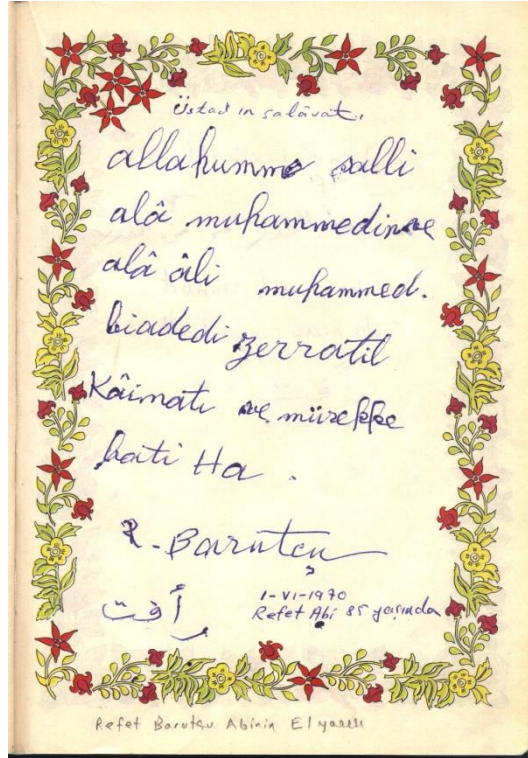 Üstad ın salâvatı
allahumme salli
alâ muhammedinve
alâ âli muhammed.
biadedi zerratil
Kâinatı ve mürekke
bati Ha .
R. Barutçu
رأفت
1-VI-1970
Refet Abi 85 yaşında
Refet Barutçu Abinin El yazısı